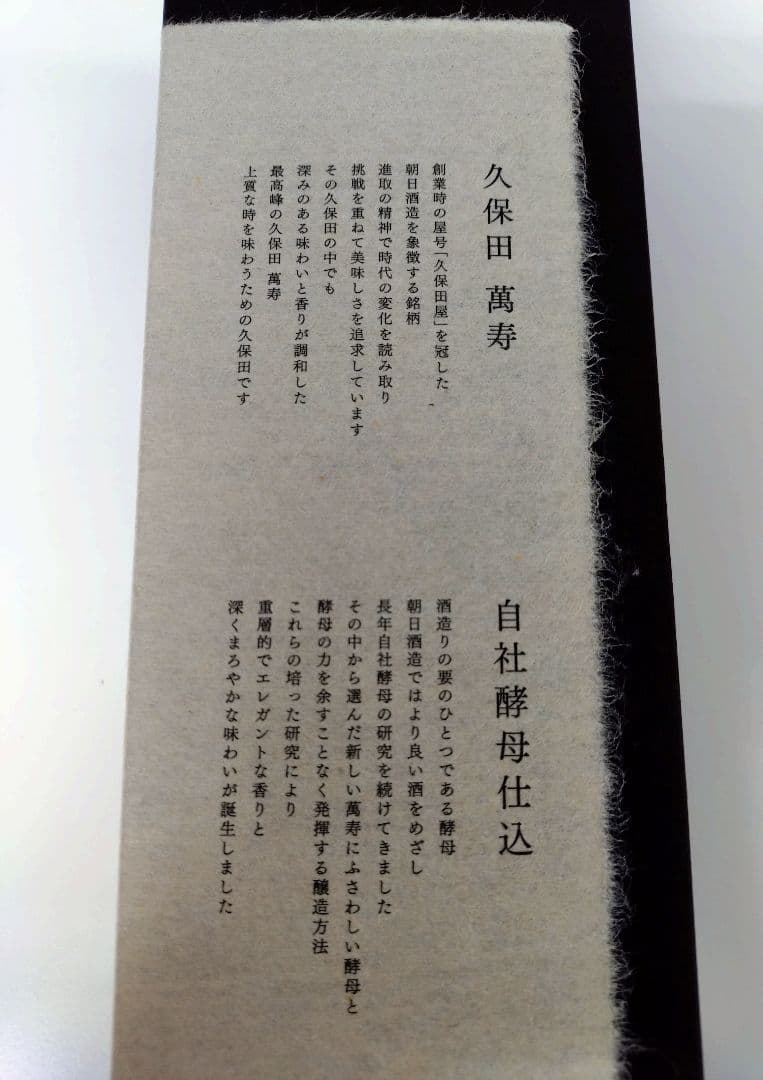 久保田 萬寿
創業時の屋号「久保田屋」を冠した
朝日酒造を象徴する銘柄
進取の精神で時代の変化を読み取り
挑戦を重ねて美味しさを追求しています
その久保田の中でも
深みのある味わいと香りが調和した
最高峰の久保田 萬寿
上質な時を味わうための久保田です
自社酵母仕込
酒造りの要のひとつである酵母
朝日酒造ではより良い酒をめざし
長年自社酵母の研究を続けてきました
その中から選んだ新しい萬寿にふさわしい酵母と
酵母の力を余すことなく発揮する醸造方法
これらの培った研究により
重層的でエレガントな香りと
深くまろやかな味わいが誕生しました